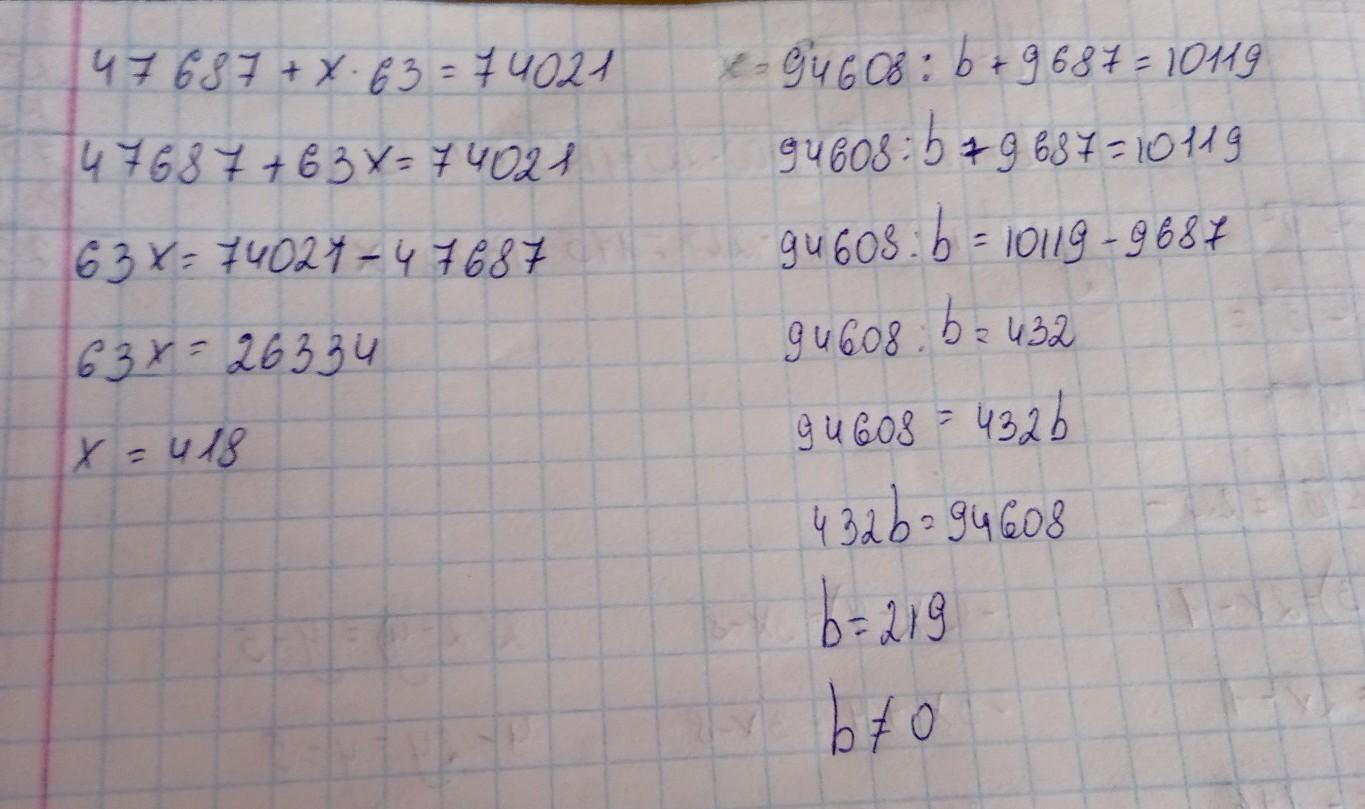 47687 + x · 63 = 74021
47687 + 63x = 74021
63x = 74021 - 47687
63x = 26334
x = 418
94608 : b + 9687 = 10119
94608 : b + 9687 = 10119
94608 : b = 10119 - 9687
94608 : b = 432
94608 = 432b
432b = 94608
b = 219
b ≠ 0